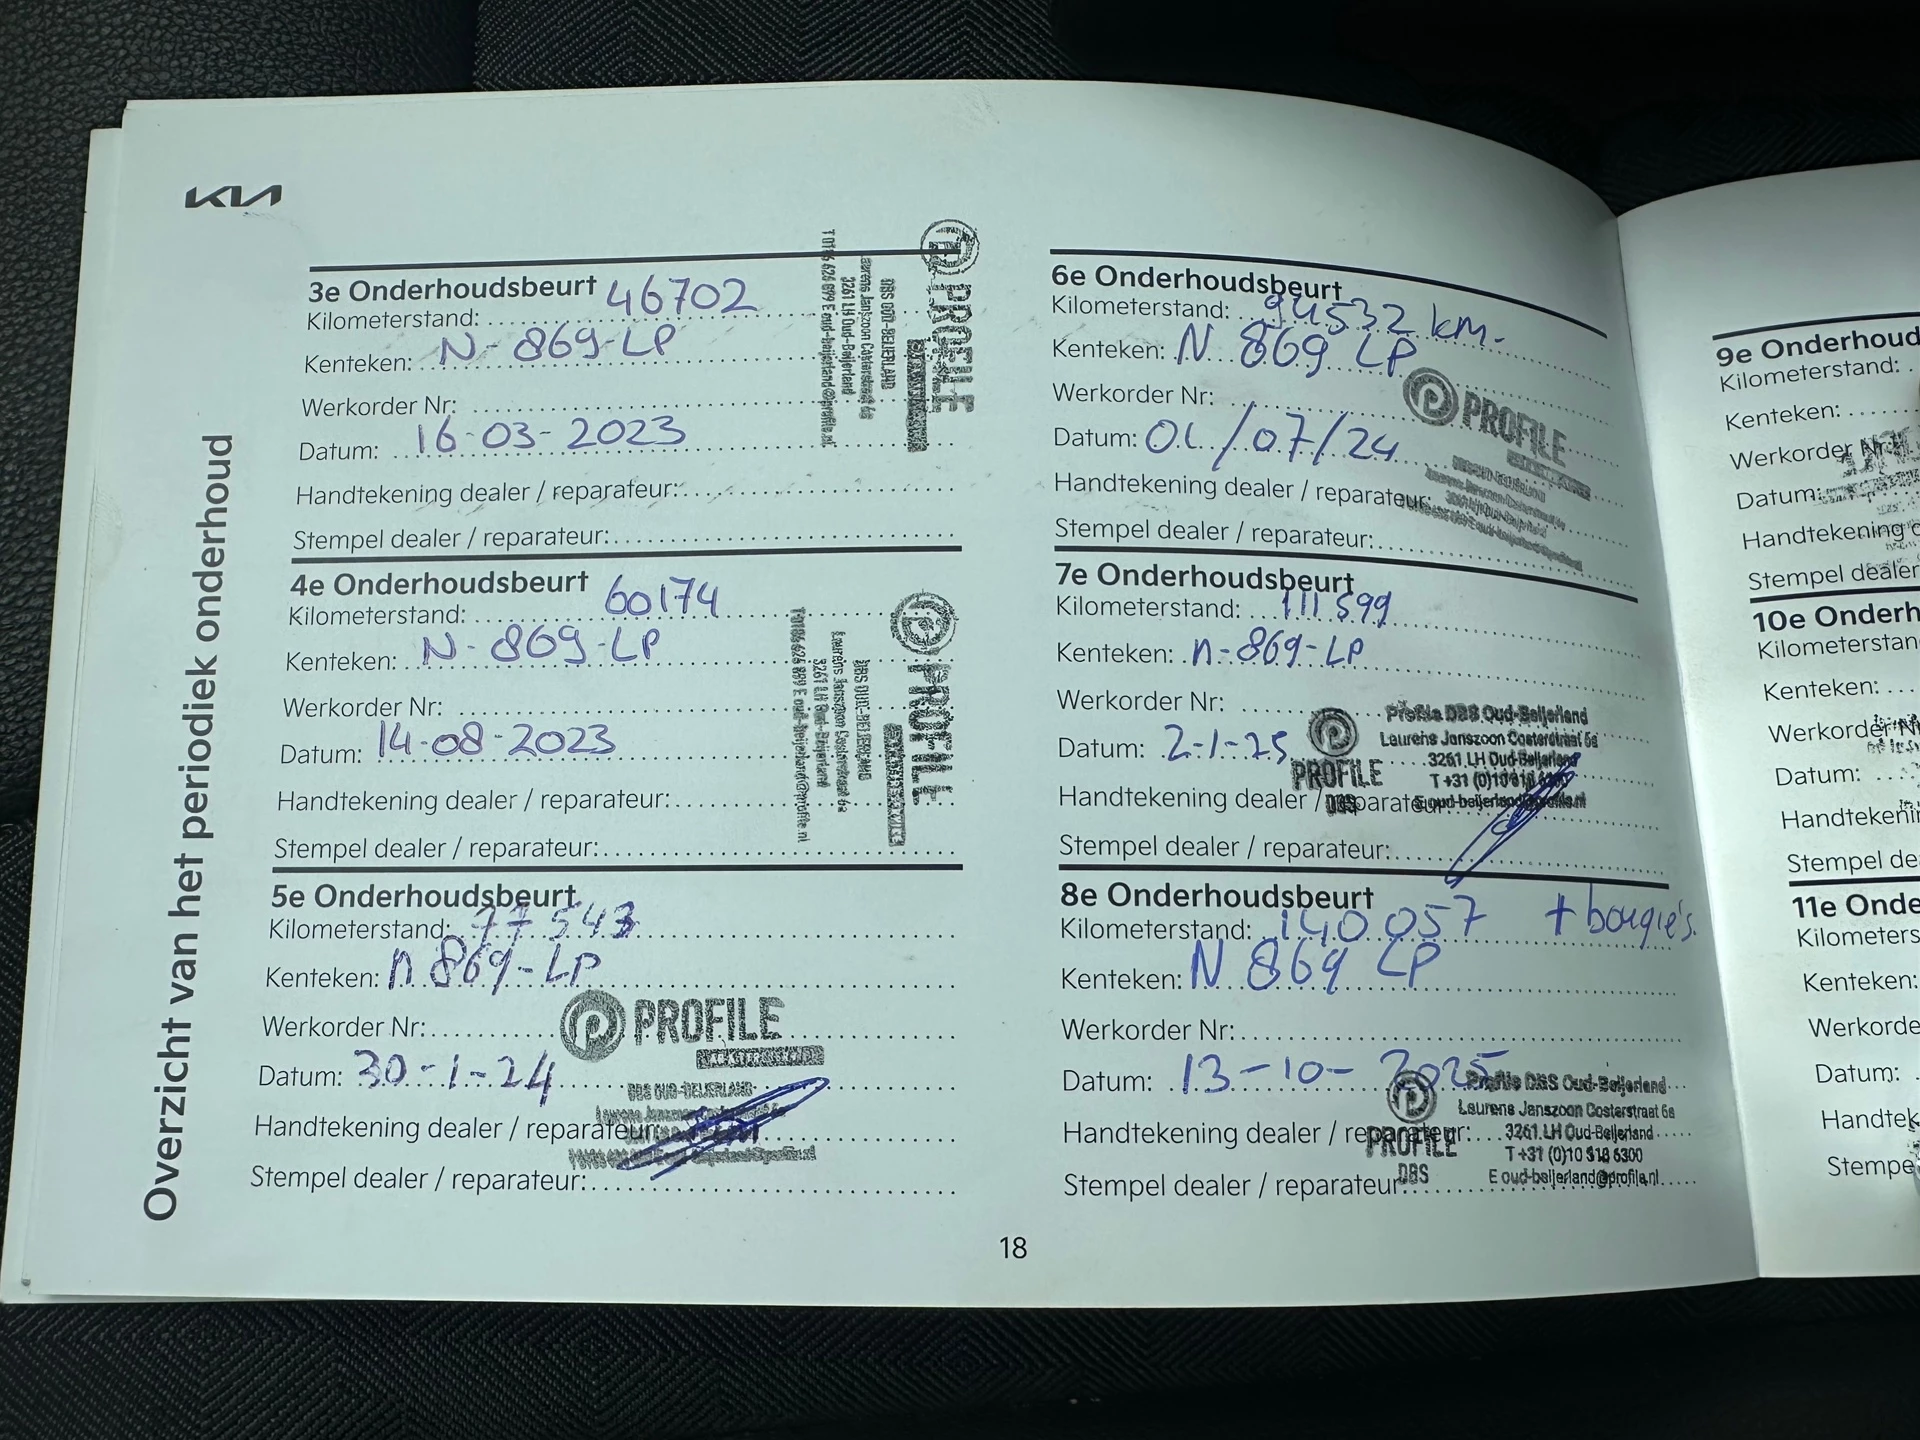 KIA
Overzicht van het periodiek onderhoud
3e Onderhoudsbeurt
Kilometerstand: 46702
Kenteken: N-869-LP
Werkorder Nr:
Datum: 16-03-2023
Handtekening dealer / reparateur:
Stempel dealer / reparateur:
PROFILE
DBS OUD-BEIJERLAND
Laurens Janszoon Costerstraat 6a
3261 LH Oud-Beijerland
T 0186 626 899 E oud-beijerland@profile.nl
4e Onderhoudsbeurt
Kilometerstand: 60174
Kenteken: N-869-LP
Werkorder Nr:
Datum: 14-08-2023
Handtekening dealer / reparateur:
Stempel dealer / reparateur:
PROFILE
DBS OUD-BEIJERLAND
Laurens Janszoon Costerstraat 6a
3261 LH Oud-Beijerland
T 0186 626 899 E oud-beijerland@profile.nl
5e Onderhoudsbeurt
Kilometerstand: 77543
Kenteken: n 869-LP
Werkorder Nr:
PROFILE
Datum: 30-1-24
DBS OUD-BEIJERLAND
Handtekening dealer / reparateur:
Stempel dealer / reparateur:
6e Onderhoudsbeurt
Kilometerstand: 94532 km.
Kenteken: N 869 LP
Werkorder Nr:
PROFILE
Datum: 01/07/24
Handtekening dealer / reparateur:
Stempel dealer / reparateur:
7e Onderhoudsbeurt
Kilometerstand: 111.599
Kenteken: n-869-LP
Werkorder Nr:
Datum: 2-1-25
PROFILE
DBS
Profile DBS Oud-Beijerland
Laurens Janszoon Costerstraat 6a
3261 LH Oud-Beijerland
T +31 (0)10 518
E oud-beijerland@profile.nl
Handtekening dealer / reparateur:
Stempel dealer / reparateur:
8e Onderhoudsbeurt
Kilometerstand: 140.057 + bougie's.
Kenteken: N 869 LP
Werkorder Nr:
Datum: 13-10-2025
PROFILE
DBS
Profile DBS Oud-Beijerland
Laurens Janszoon Costerstraat 6a
3261 LH Oud-Beijerland
T +31 (0)10 518 6300
E oud-beijerland@profile.nl
Handtekening dealer / reparateur:
Stempel dealer / reparateur:
18
9e Onderhoud
Kilometerstand:
Kenteken:
Werkorder Nr:
Datum:
Handtekening
Stempel dealer
10e Onderh
Kilometerstan
Kenteken:
Werkorder Nr
Datum:
Handtekenin
Stempel de
11e Onde
Kilometers
Kenteken:
Werkorde
Datum:
Handtek
Stempe